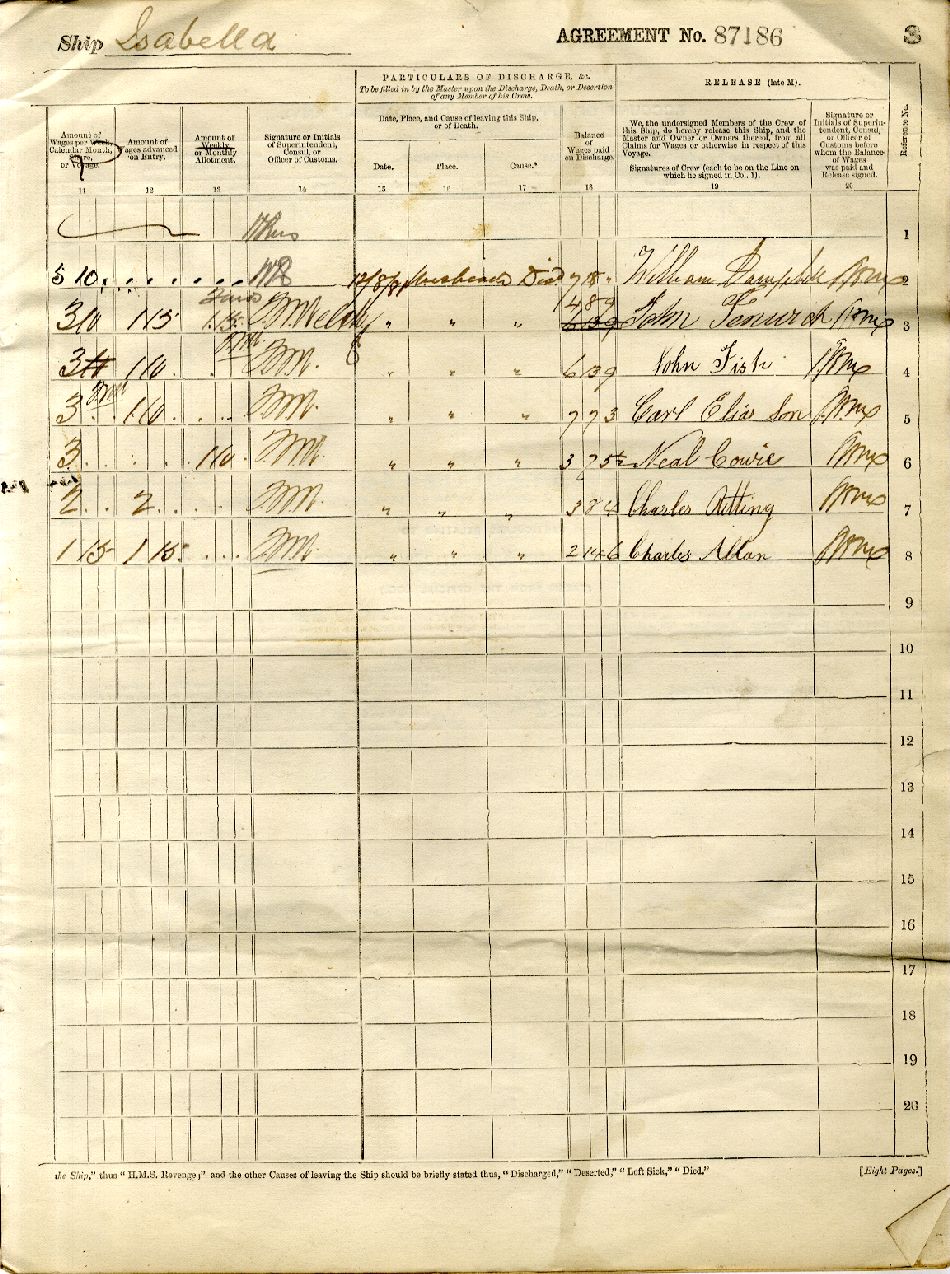 Ship Isabella AGREEMENT No. 87186 3
PARTICULARS OF DISCHARGE, &c. RELEASE (late M).
To be filled in by the Master upon the Discharge, Death, or Desertion
of any Member of his Crew.
Amount of Wages per Week, Calendar Month, Share, or Voyage.
Amount of Wages advanced on Entry.
Amount of Weekly or Monthly Allotment.
Signature or Initials of Superintendent, Consul, or Officer of Customs.
Date, Place, and Cause of leaving this Ship, or of Death.
Date. Place. Cause.*
Balance of Wages paid on Discharge.
We, the undersigned Members of the Crew of this Ship, do hereby release this Ship, and the Master and Owner or Owners thereof, from all Claims for Wages or otherwise in respect of this Voyage.
Signatures of Crew (each to be on the Line on which he signed in Col. 1).
Signature or Initials of Superintendent, Consul, or Officer of Customs before whom the Balance of Wages was paid and Release signed.
Reference No.
11 12 13 14 15 16 17 18 19 20
1
5 10 Wisbeach 7 18 " William Campbell 2
3 10 1 15 1 15 " " " 14 8 9 John 3
3 1 10 " " " 6 3 9 John Fisk 4
3 1 10 " " " 7 7 3 Carl Elias Son 5
3 1 10 " " " 3 7 5 Neal Cowie 6
2 2 " " " 3 8 4 Charles 7
1 15 1 15 " " " 2 14 6 Charles Allan 8
9
10
11
12
13
14
15
16
17
18
19
20
the Ship," thus "H.M.S. Revenge;" and the other Causes of leaving the Ship should be briefly stated thus, "Discharged," "Deserted," "Left Sick," "Died." [Eight Pages.]